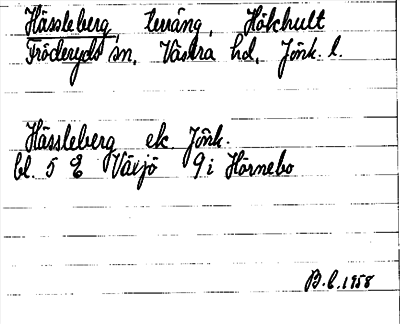 Hässleberg terräng, Hökhult
Fröderyds sn, Västra hd, Jönk. l.
Hässleberg ek. Jönk.
bl. 5 E Växjö 9 i Hörnebo
B.L. 1958